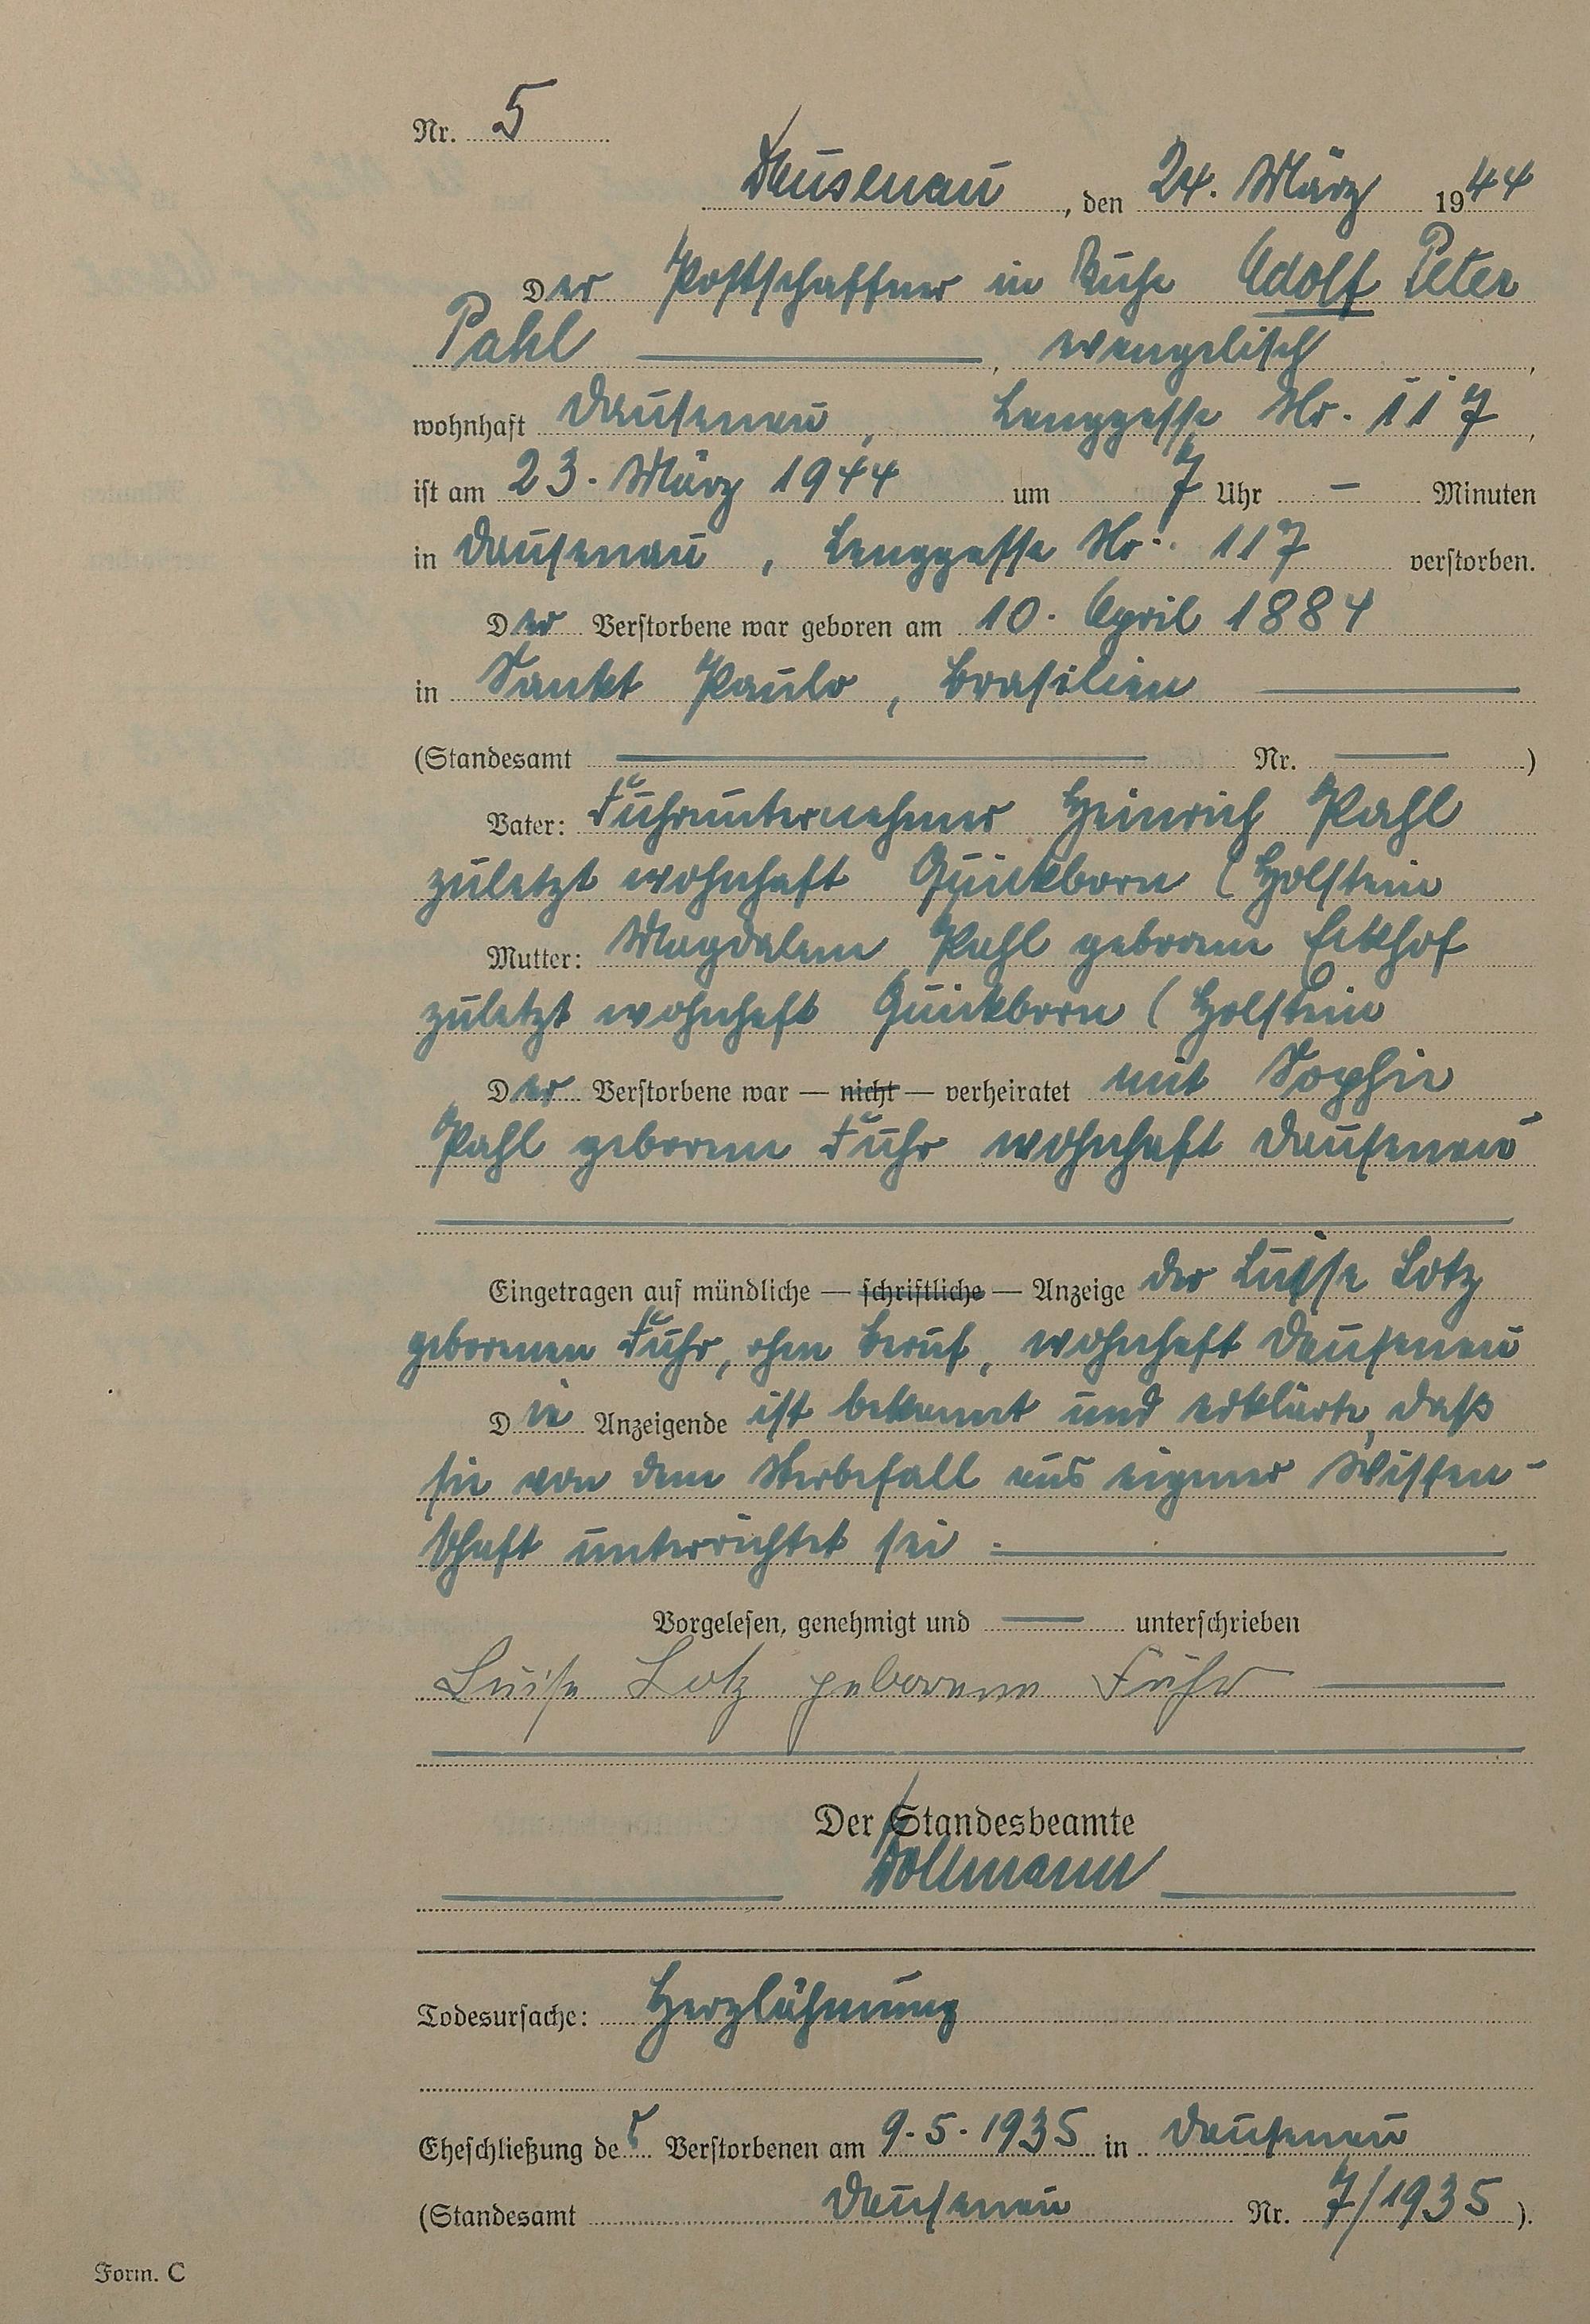 Nr. 5
Dausenau, den 24. März 1944
Der Postschaffner in Ruhe Adolf Peter
Pahl, evangelisch,
wohnhaft Dausenau, Langgasse Nr. 117,
ist am 23. März 1944 um 7 Uhr – Minuten
in Dausenau, Langgasse Nr. 117 verstorben.
Der Verstorbene war geboren am 10. April 1884
in Sankt Paulo, Brasilien
(Standesamt Nr. )
Vater: Fuhrunternehmer Heinrich Pahl
zuletzt wohnhaft Quickborn (Holstein
Mutter: Magdalene Pahl geborene Eckhof
zuletzt wohnhaft Quickborn (Holstein
Der Verstorbene war — nicht — verheiratet mit Sophie
Pahl geborene Fuhr wohnhaft Dausenau
Eingetragen auf mündliche — schriftliche — Anzeige der Luise Lotz
geborenen Fuhr, ohne Beruf, wohnhaft Dausenau
Die Anzeigende ist bekannt und erklärte, daß
sie von dem Sterbefall aus eigener Wissen-
schaft unterrichtet sei.
Vorgelesen, genehmigt und unterschrieben
Luise Lotz geborene Fuhr
Der Standesbeamte
Todesursache: Herzlähmung
Eheschließung des Verstorbenen am 9.5.1935 in Dausenau
(Standesamt Dausenau Nr. 7/1935).
Form. C